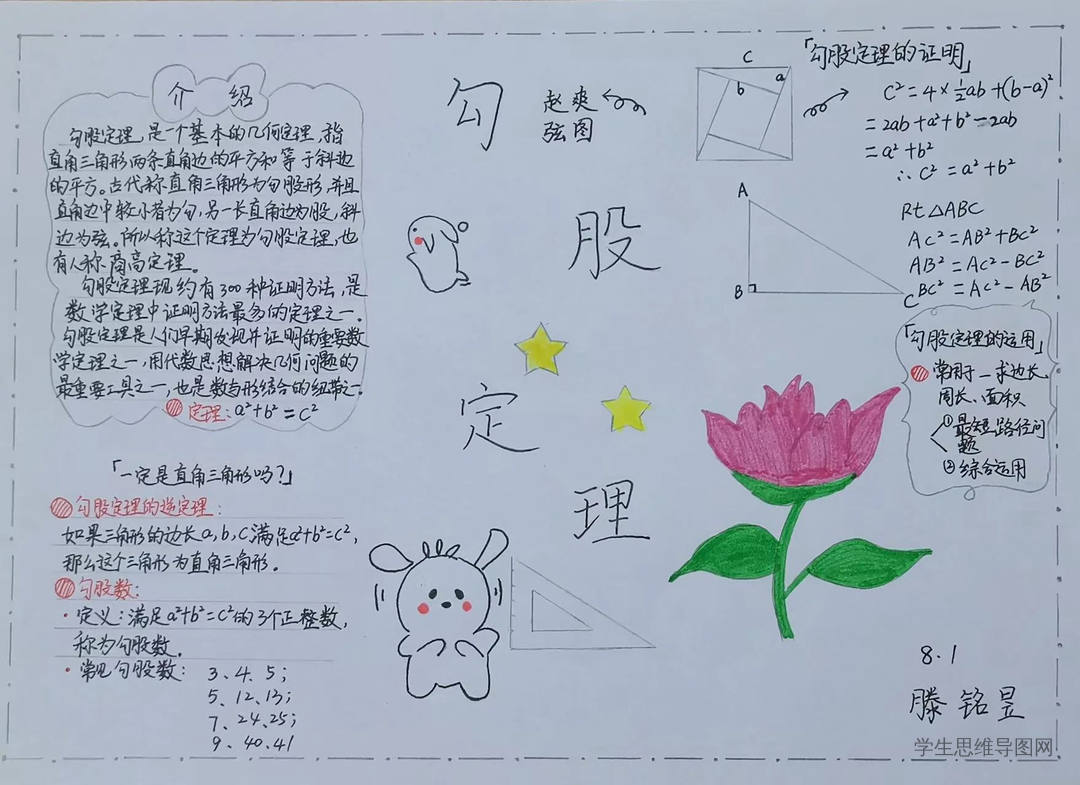 介绍
勾股定理,是一个基本的几何定理,指
直角三角形两条直角边的平方和等于斜边
的平方。古代称直角三角形为勾股形,并且
直角边中较小者为勾,另一长直角边为股,斜
边为弦。所以称这个定理为勾股定理,也
有人称商高定理。
勾股定理现约有300种证明方法,是
数学定理中证明方法最多的定理之一。
勾股定理是人们早期发现并证明的重要数
学定理之一,用代数思想解决几何问题的
最重要工具之一,也是数与形结合的纽带之一。
定理:a²+b²=c²
「一定是直角三角形吗?」
勾股定理的逆定理:
如果三角形的边长a,b,c满足a²+b²=c²,
那么这个三角形为直角三角形。
勾股数:
·定义:满足a²+b²=c²的3个正整数,
称为勾股数。
·常见勾股数:3、4、5;
5、12、13;
7、24、25;
9、40、41
勾
股
定
理
赵爽
弦图
C
a
b
「勾股定理的证明」
C²=4×½ab+(b-a)²
=2ab+a²+b²-2ab
=a²+b²
∴C²=a²+b²
A
B
C
Rt△ABC
AC²=AB²+BC²
AB²=AC²-BC²
BC²=AC²-AB²
「勾股定理的运用」
常用于—求边长、
周长、面积
①最短路径问
题
②综合运用
8.1
滕铭昱
学生思维导图网